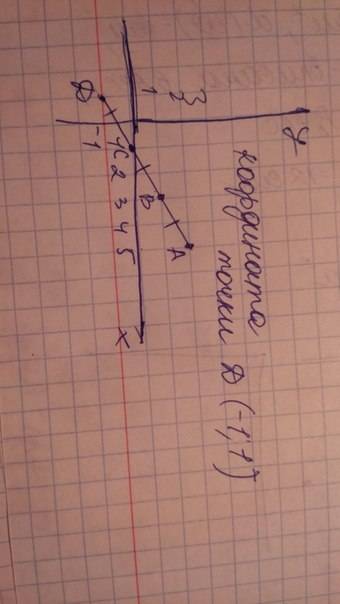 y
координата
точки D (-1;1)
3
2
A
1
B
1 C 2 3 4 5 x
-1
D